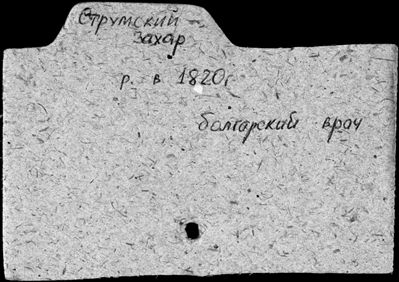 Струмский
Захар
р. в 1820г
болгарский врач